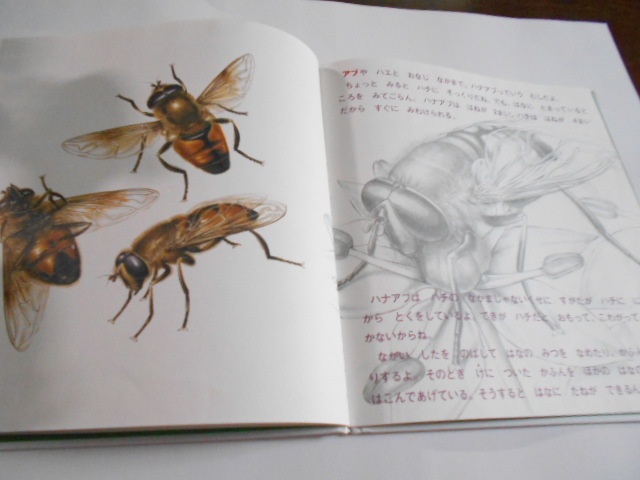 アブや ハエと おなじ なかまで、ハナアブっていう むしだよ。
ちょっと みると ハチに そっくりだね。でも、はなに とまっていると
ころを みてごらん。ハナアブは はねが 2まい、ハチは はねが 4まい
だから すぐに みわけられる。
ハナアブは ハチの なかまじゃない くせに すがたが ハチに
から とくをしているよ。てきが ハチだと おもって、こわがって
かないからね。
ながい したを のばして はなの みつを なめたり、かふん
りするよ。そのとき けに ついた かふんを ほかの はなの
はこんであげている。そうすると はなに たねが できる